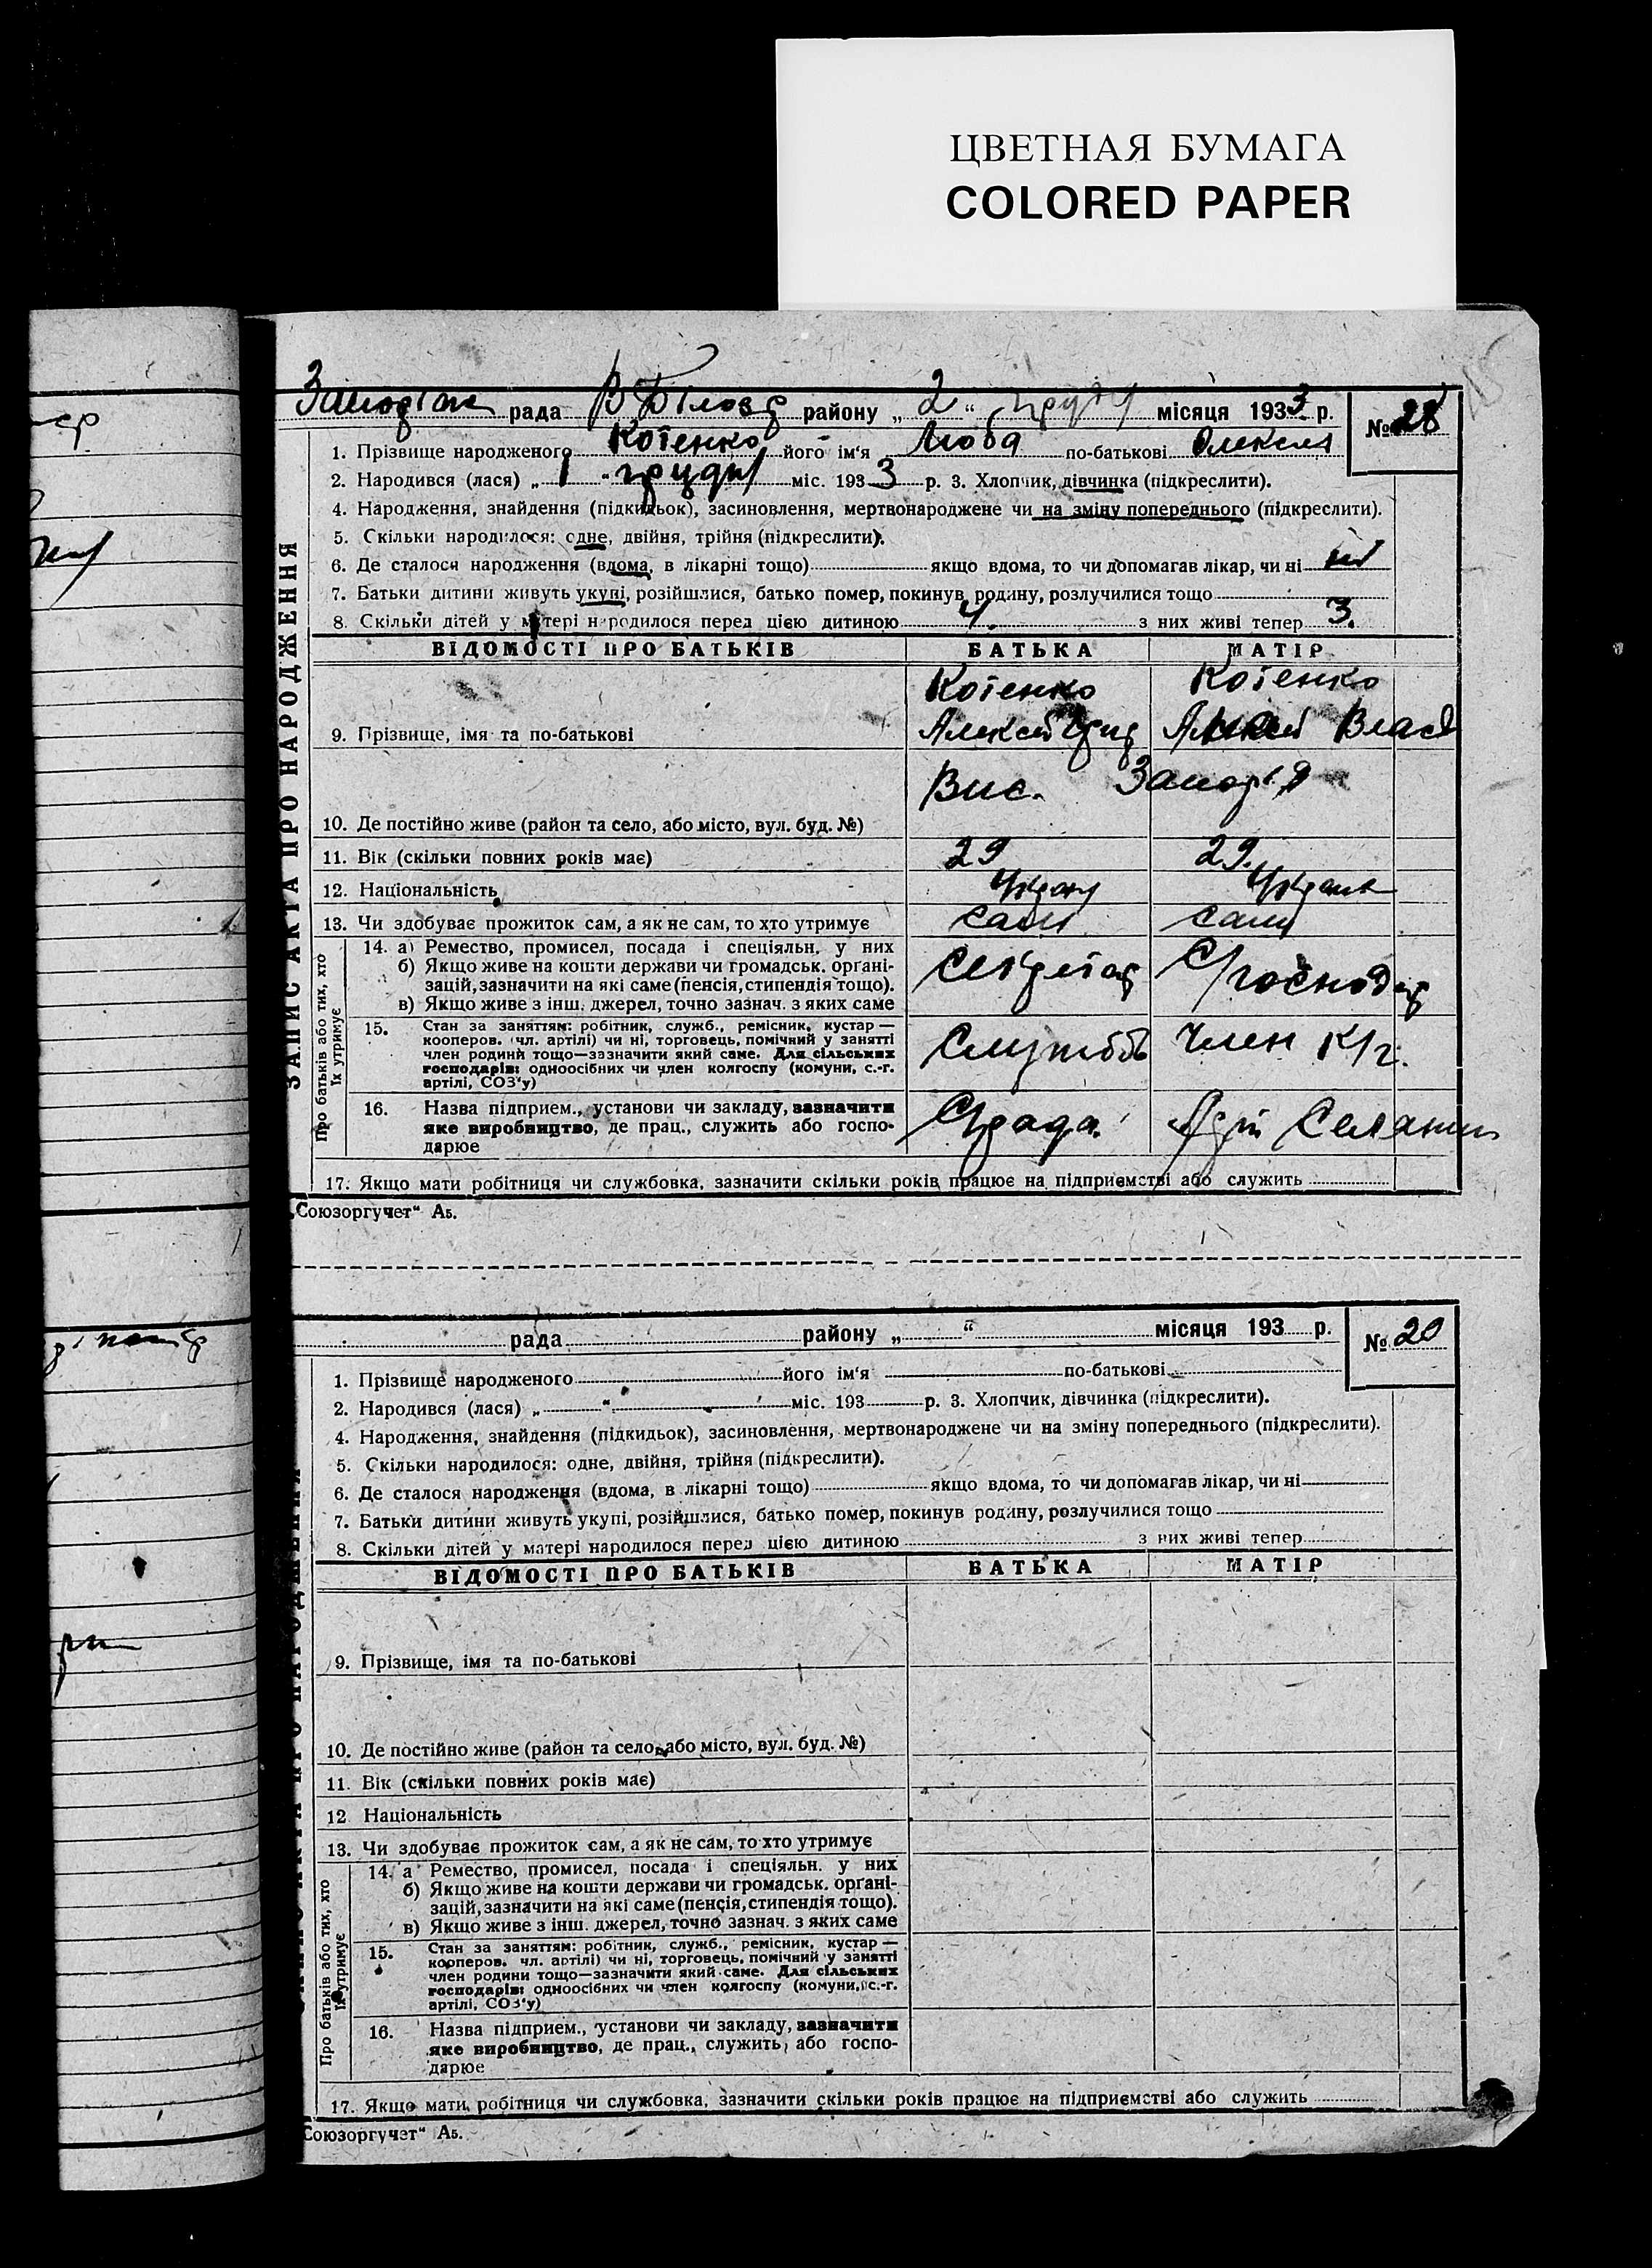 ЦВЕТНАЯ БУМАГА
COLORED PAPER
рада В Біловр району „ 2 “ грудня місяця 1933 р.
№ 28
1. Прізвище народженого Котенко його ім'я Люба по-батькові Олексия
2. Народився (лася) „ 1 “ грудня міс. 193 3 р. 3. Хлопчик, дівчинка (підкреслити).
4. Народження, знайдення (підкидьок), засиновлення, мертвонароджене чи на зміну попереднього (підкреслити).
5. Скільки народилося: одне, двійня, трійня (підкреслити).
6. Де сталося народження (вдома, в лікарні тощо) якщо вдома, то чи допомагав лікар, чи ні ні
7. Батьки дитини живуть укупі, розійшлися, батько помер, покинув родину, розлучилися тощо
8. Скільки дітей у матері народилося перед цією дитиною 4. з них живі тепер 3.
ЗАПИС АКТА ПРО НАРОДЖЕННЯ
ВІДОМОСТІ ПРО БАТЬКІВ БАТЬКА МАТІР
Котенко Котенко
9. Прізвище, імя та по-батькові Алексей Влас
Вис.
10. Де постійно живе (район та село, або місто, вул. буд. №)
11. Вік (скільки повних років має) 29 29.
12. Національність Укран Украин
13. Чи здобуває прожиток сам, а як не сам, то хто утримує сам сам
Про батьків або тих, хто їх утримує
14. а) Ремество, промисел, посада і спеціяльн. у них
б) Якщо живе на кошти держави чи громадськ. органі-
зацій, зазначити на які саме (пенсія, стипендія тощо).
в) Якщо живе з інш. джерел, точно зазнач. з яких саме
Секретар С/господар
15. Стан за заняттям: робітник, служб., ремісник, кустар —
кооперов. чл. артілі) чи ні, торговець, помічний у занятті
член родини тощо—зазначити який саме. Для сільських
господарів: одноосібних чи член колгоспу (комуни, с.-г.
артілі, СОЗ'у)
Член К/г.
16. Назва підприєм., установи чи закладу, зазначити
яке виробництво, де прац., служить або госпо-
дарює
С/рада. Селянин
17. Якщо мати робітниця чи службовка, зазначити скільки років працює на підприємстві або служить
„Союзоргучет“ А5.
рада району „ “ місяця 193 р.
№ 20
1. Прізвище народженого його ім'я по-батькові
2. Народився (лася) „ “ міс. 193 р. 3. Хлопчик, дівчинка (підкреслити).
4. Народження, знайдення (підкидьок), засиновлення, мертвонароджене чи на зміну попереднього (підкреслити).
5. Скільки народилося: одне, двійня, трійня (підкреслити).
6. Де сталося народження (вдома, в лікарні тощо) якщо вдома, то чи допомагав лікар, чи ні
7. Батьки дитини живуть укупі, розійшлися, батько помер, покинув родину, розлучилися тощо
8. Скільки дітей у матері народилося перед цією дитиною з них живі тепер
ВІДОМОСТІ ПРО БАТЬКІВ БАТЬКА МАТІР
9. Прізвище, імя та по-батькові
10. Де постійно живе (район та село, або місто, вул. буд. №)
11. Вік (скільки повних років має)
12 Національність
13. Чи здобуває прожиток сам, а як не сам, то хто утримує
Про батьків або тих, хто їх утримує
14. а Ремество, промисел, посада і спеціяльн. у них
б) Якщо живе на кошти держави чи громадськ. органі-
зацій, зазначити на які саме (пенсія, стипендія тощо).
в) Якщо живе з інш. джерел, точно зазнач. з яких саме
15. Стан за заняттям: робітник, служб., ремісник, кустар —
кооперов. чл. артілі) чи ні, торговець, помічний у занятті
член родини тощо—зазначити який саме. Для сільських
господарів: одноосібних чи член колгоспу (комуни, с.-г.
артілі, СОЗ'у)
16. Назва підприєм., установи чи закладу, зазначити
яке виробництво, де прац., служить, або госпо-
дарює
17. Якщо мати робітниця чи службовка, зазначити скільки років працює на підприємстві або служить
Союзоргучет“ А5.